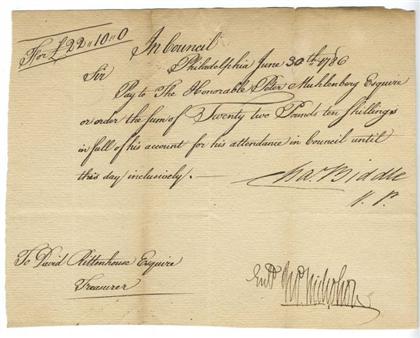 For £22"10"0
In Council
Philadelphia June 30th 1786
Sir
Pay to The Honorable Peter Muhlenberg Esquire
or order the Sum of Twenty two Pounds ten Shillings
in full of his account for his attendance in Council until
this day inclusively.
Chas Biddle
V. P.
To David Rittenhouse Esquire
Treasurer
Entd Jno Nicholson